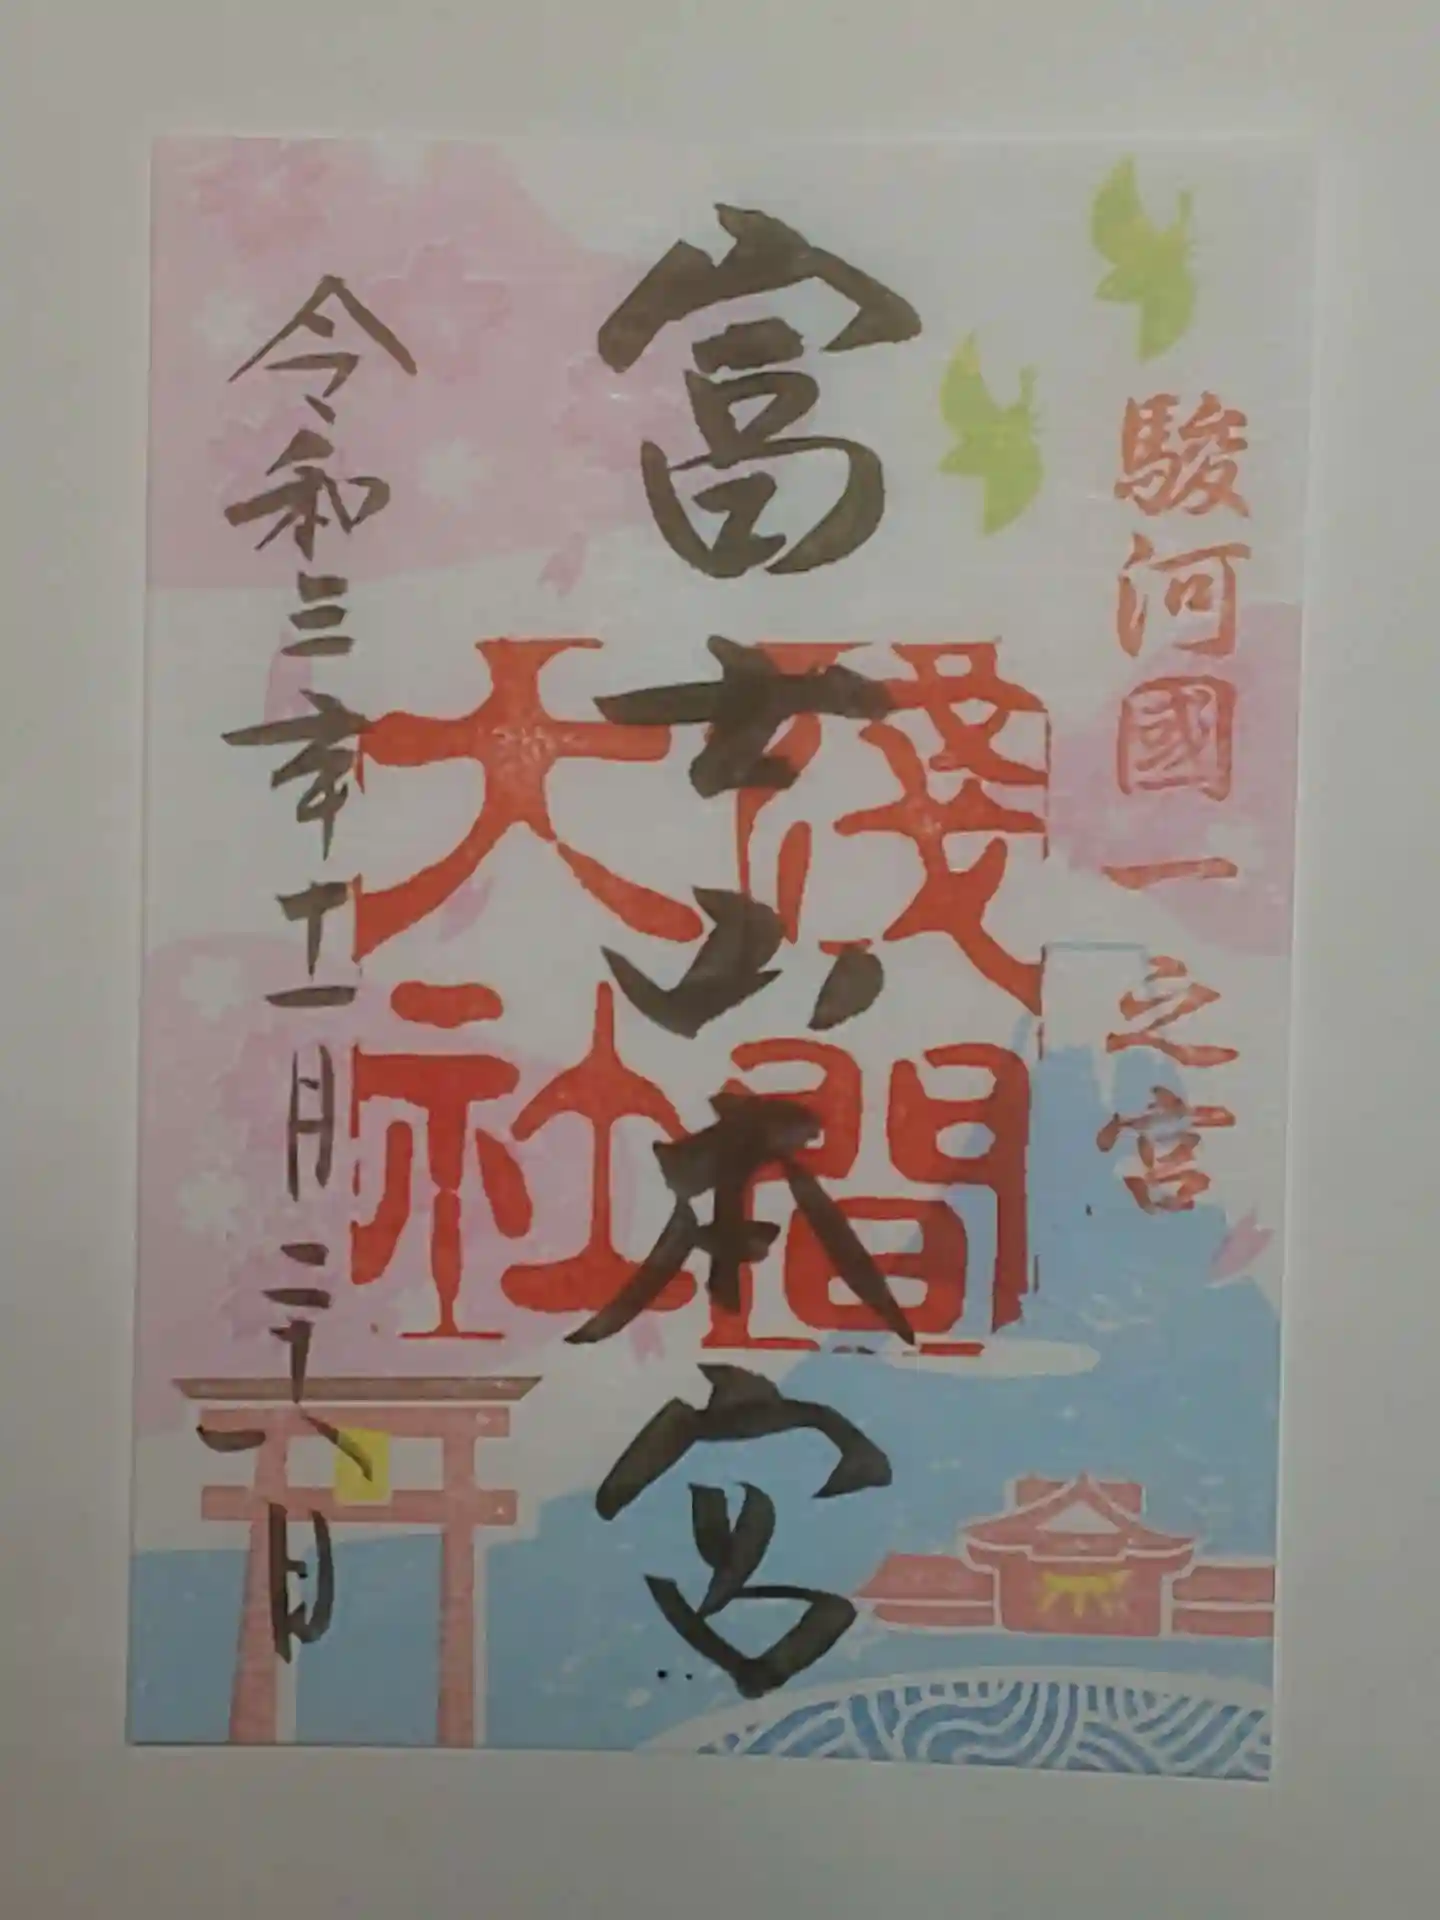 駿河國一之宮
富士山本宮
淺間
大社
令和三年十一月二十八日